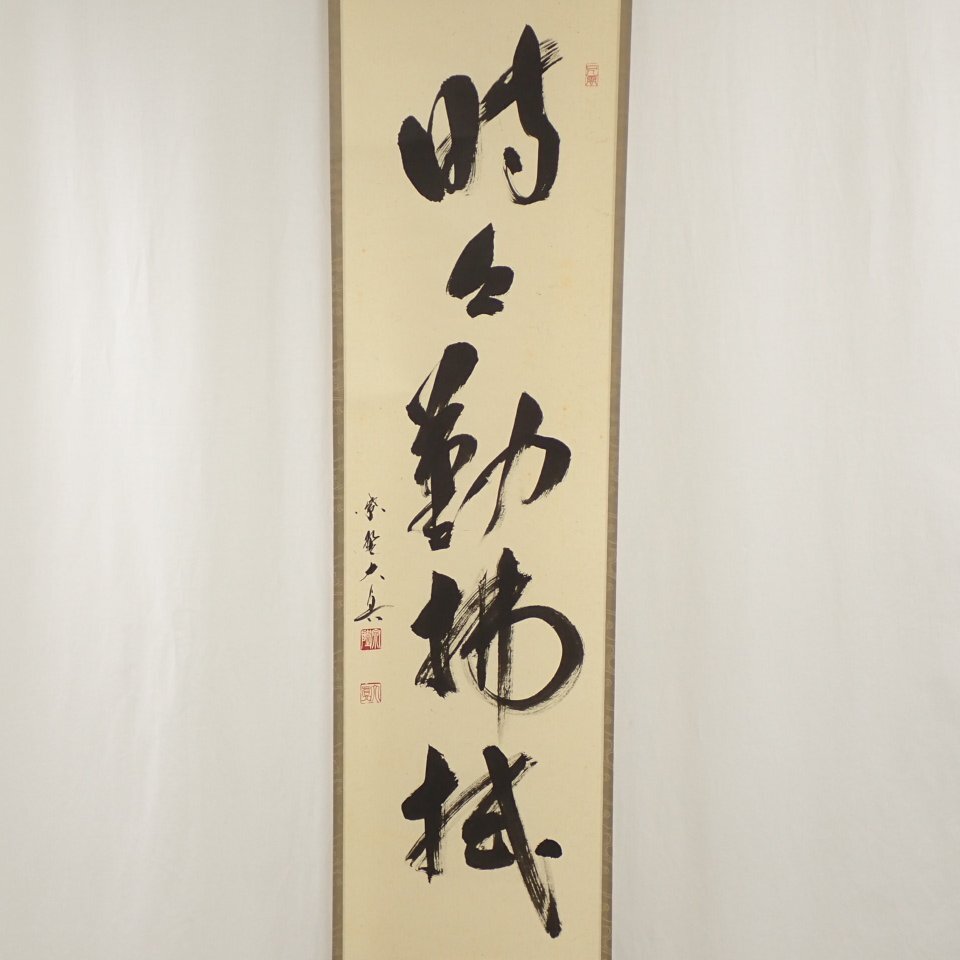 時々勤拂拭
紫野大真